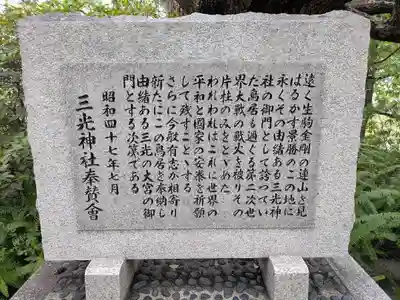 遠く生駒金剛の連山を見
はるかす景勝のこの地に
永くその由緒ある三光神
社の御門として誇ってい
た鳥居も過ぐる第二次世
界大戦の戦火を被りその
片柱のみをとゞめた
われわれはこれに世界の
平和と國家の安泰を祈願
して残すことゝする
さらに今般有志が相寄り
新たにこの鳥居を奉納し
由緒ある三光の大宮の御
門とする次第である
昭和四十七年七月
三光神社奉賛會